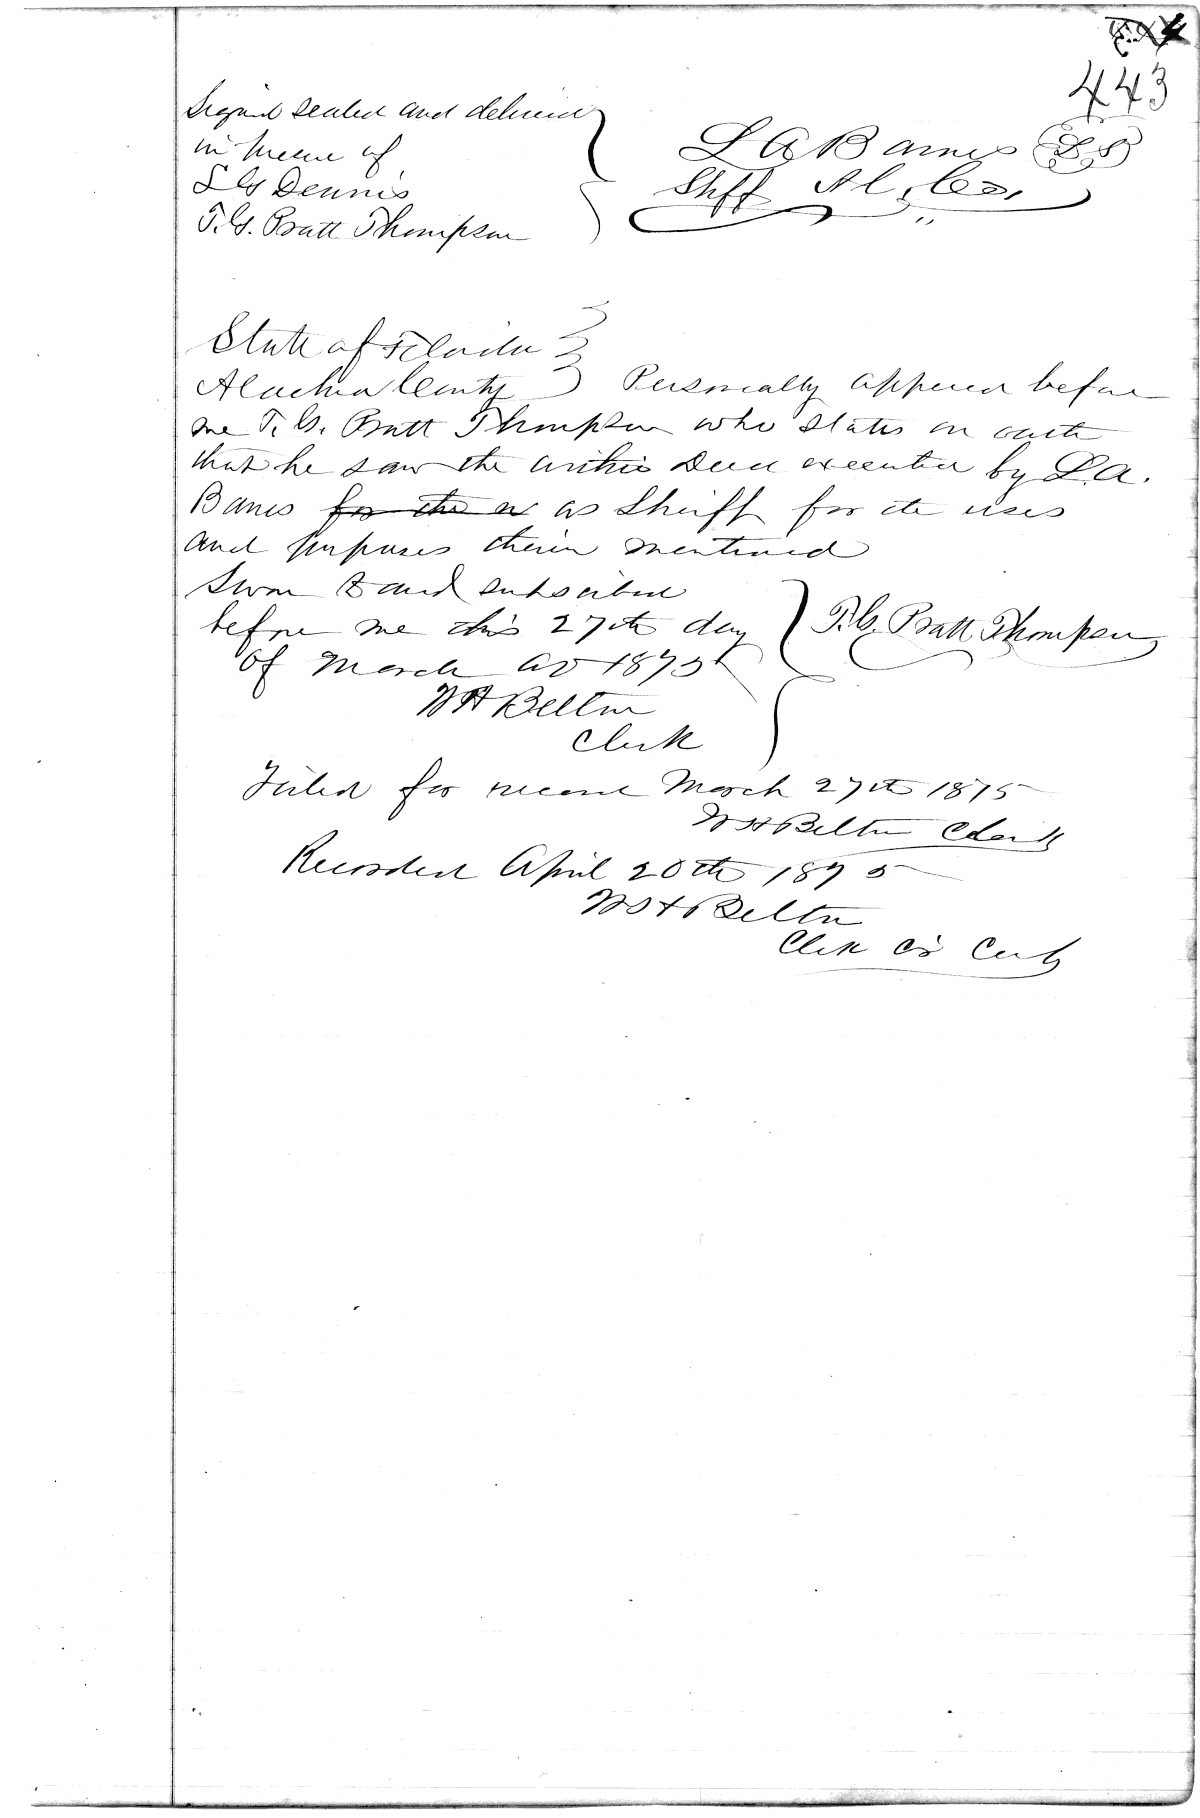 443
Signed sealed and delivered
in presence of
L G Dennis
T. G. Pratt Thompson
L A Barnes L S
Shff Al. Co.
State of Florida
Alachua County Personally appeared before
me T. G. Pratt Thompson who states on oath
that he saw the within Deed executed by L. A.
Barnes for the as Sheriff for the uses
and purposes therein mentioned
Sworn to and subscribed
before me this 27th day
of March AD 1875
T. G. Pratt Thompson
W H Belton
Clerk
Filed for record March 27th 1875
W H Belton Clerk
Recorded April 20th 1875
W H Belton
Clerk Cir Court